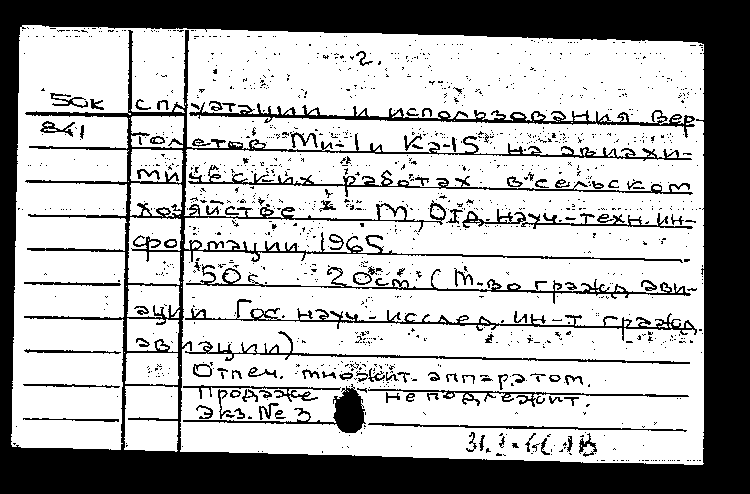 2.
50к сплуатации и использования вер-
841 толетов Ми-1 и Ка-15 на авиахи-
мических работах в сельском
хозяйстве. - М, Отд. науч.-техн. ин-
формации, 1965.
50с. 20см. (М-во гражд. ави-
ации Гос. науч.-исслед. ин-т гражд.
авиации)
Отпеч. множит. аппаратом.
Продаже не подлежит.
Экз. № 3